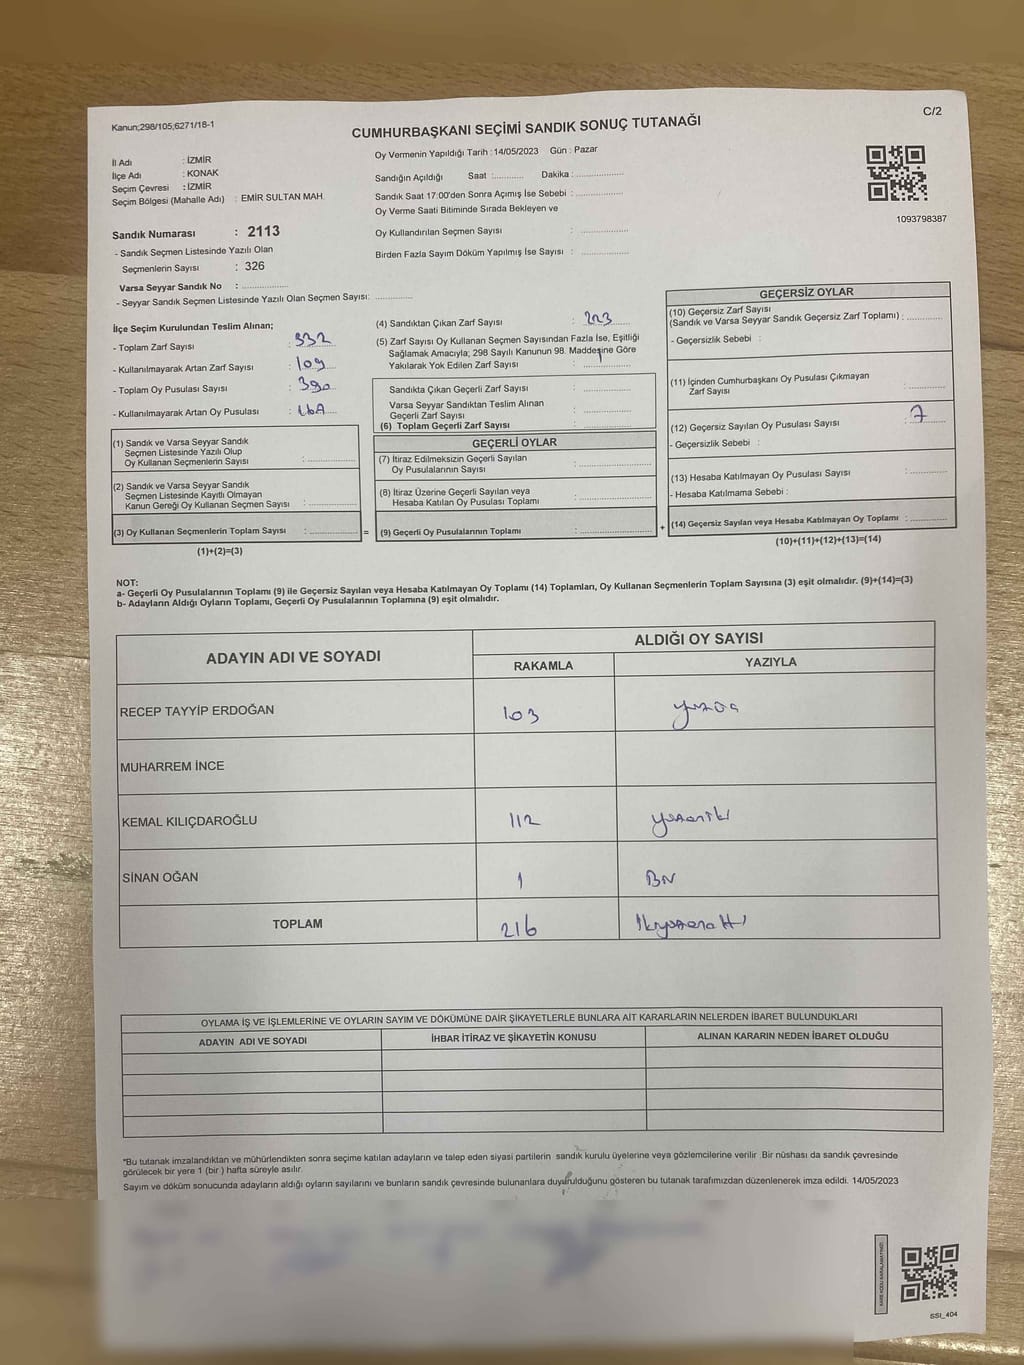 Kanun;298/105;6271/18-1
C/2
CUMHURBAŞKANI SEÇİMİ SANDIK SONUÇ TUTANAĞI
İl Adı : İZMİR
İlçe Adı : KONAK
Seçim Çevresi : İZMİR
Seçim Bölgesi (Mahalle Adı) : EMİR SULTAN MAH.
Sandık Numarası : 2113
- Sandık Seçmen Listesinde Yazılı Olan
Seçmenlerin Sayısı : 326
Varsa Seyyar Sandık No :
- Seyyar Sandık Seçmen Listesinde Yazılı Olan Seçmen Sayısı:
Oy Vermenin Yapıldığı Tarih : 14/05/2023 Gün : Pazar
Sandığın Açıldığı Saat : Dakika :
Sandık Saat 17:00'den Sonra Açımış İse Sebebi :
Oy Verme Saati Bitiminde Sırada Bekleyen ve
Oy Kullandırılan Seçmen Sayısı :
Birden Fazla Sayım Döküm Yapılmış İse Sayısı :
1093798387
İlçe Seçim Kurulundan Teslim Alınan;
- Toplam Zarf Sayısı : 332
- Kullanılmayarak Artan Zarf Sayısı : 109
- Toplam Oy Pusulası Sayısı : 390
- Kullanılmayarak Artan Oy Pusulası :
(1) Sandık ve Varsa Seyyar Sandık
Seçmen Listesinde Yazılı Olup
Oy Kullanan Seçmenlerin Sayısı :
(2) Sandık ve Varsa Seyyar Sandık
Seçmen Listesinde Kayıtlı Olmayan
Kanun Gereği Oy Kullanan Seçmen Sayısı :
(3) Oy Kullanan Seçmenlerin Toplam Sayısı : =
(1)+(2)=(3)
(4) Sandıktan Çıkan Zarf Sayısı : 223
(5) Zarf Sayısı Oy Kullanan Seçmen Sayısından Fazla İse, Eşitliği
Sağlamak Amacıyla; 298 Sayılı Kanunun 98. Maddesine Göre
Yakılarak Yok Edilen Zarf Sayısı :
Sandıkta Çıkan Geçerli Zarf Sayısı :
Varsa Seyyar Sandıktan Teslim Alınan
Geçerli Zarf Sayısı :
(6) Toplam Geçerli Zarf Sayısı
GEÇERLİ OYLAR
(7) İtiraz Edilmeksizin Geçerli Sayılan
Oy Pusulalarının Sayısı :
(8) İtiraz Üzerine Geçerli Sayılan veya
Hesaba Katılan Oy Pusulası Toplamı :
(9) Geçerli Oy Pusulalarının Toplamı : +
GEÇERSİZ OYLAR
(10) Geçersiz Zarf Sayısı
(Sandık ve Varsa Seyyar Sandık Geçersiz Zarf Toplamı) :
- Geçersizlik Sebebi :
(11) İçinden Cumhurbaşkanı Oy Pusulası Çıkmayan
Zarf Sayısı :
(12) Geçersiz Sayılan Oy Pusulası Sayısı : 7
- Geçersizlik Sebebi :
(13) Hesaba Katılmayan Oy Pusulası Sayısı :
- Hesaba Katılmama Sebebi :
(14) Geçersiz Sayılan veya Hesaba Katılmayan Oy Toplamı :
(10)+(11)+(12)+(13)=(14)
NOT:
a- Geçerli Oy Pusulalarının Toplamı (9) ile Geçersiz Sayılan veya Hesaba Katılmayan Oy Toplamı (14) Toplamları, Oy Kullanan Seçmenlerin Toplam Sayısına (3) eşit olmalıdır. (9)+(14)=(3)
b- Adayların Aldığı Oyların Toplamı, Geçerli Oy Pusulalarının Toplamına (9) eşit olmalıdır.
ADAYIN ADI VE SOYADI
ALDIĞI OY SAYISI
RAKAMLA YAZIYLA
RECEP TAYYİP ERDOĞAN 103
MUHARREM İNCE
KEMAL KILIÇDAROĞLU 112
SİNAN OĞAN 1
TOPLAM 216
OYLAMA İŞ VE İŞLEMLERİNE VE OYLARIN SAYIM VE DÖKÜMÜNE DAİR ŞİKAYETLERLE BUNLARA AİT KARARLARIN NELERDEN İBARET BULUNDUKLARI
ADAYIN ADI VE SOYADI İHBAR İTİRAZ VE ŞİKAYETİN KONUSU ALINAN KARARIN NEDEN İBARET OLDUĞU
*Bu tutanak imzalandıktan ve mühürlendikten sonra seçime katılan adayların ve talep eden siyasi partilerin sandık kurulu üyelerine veya gözlemcilerine verilir Bir nüshası da sandık çevresinde
görülecek bir yere 1 (bir) hafta süreyle asılır.
Sayım ve döküm sonucunda adayların aldığı oyların sayılarını ve bunların sandık çevresinde bulunanlara duyurulduğunu gösteren bu tutanak tarafımızdan düzenlenerek imza edildi. 14/05/2023
SSI_404